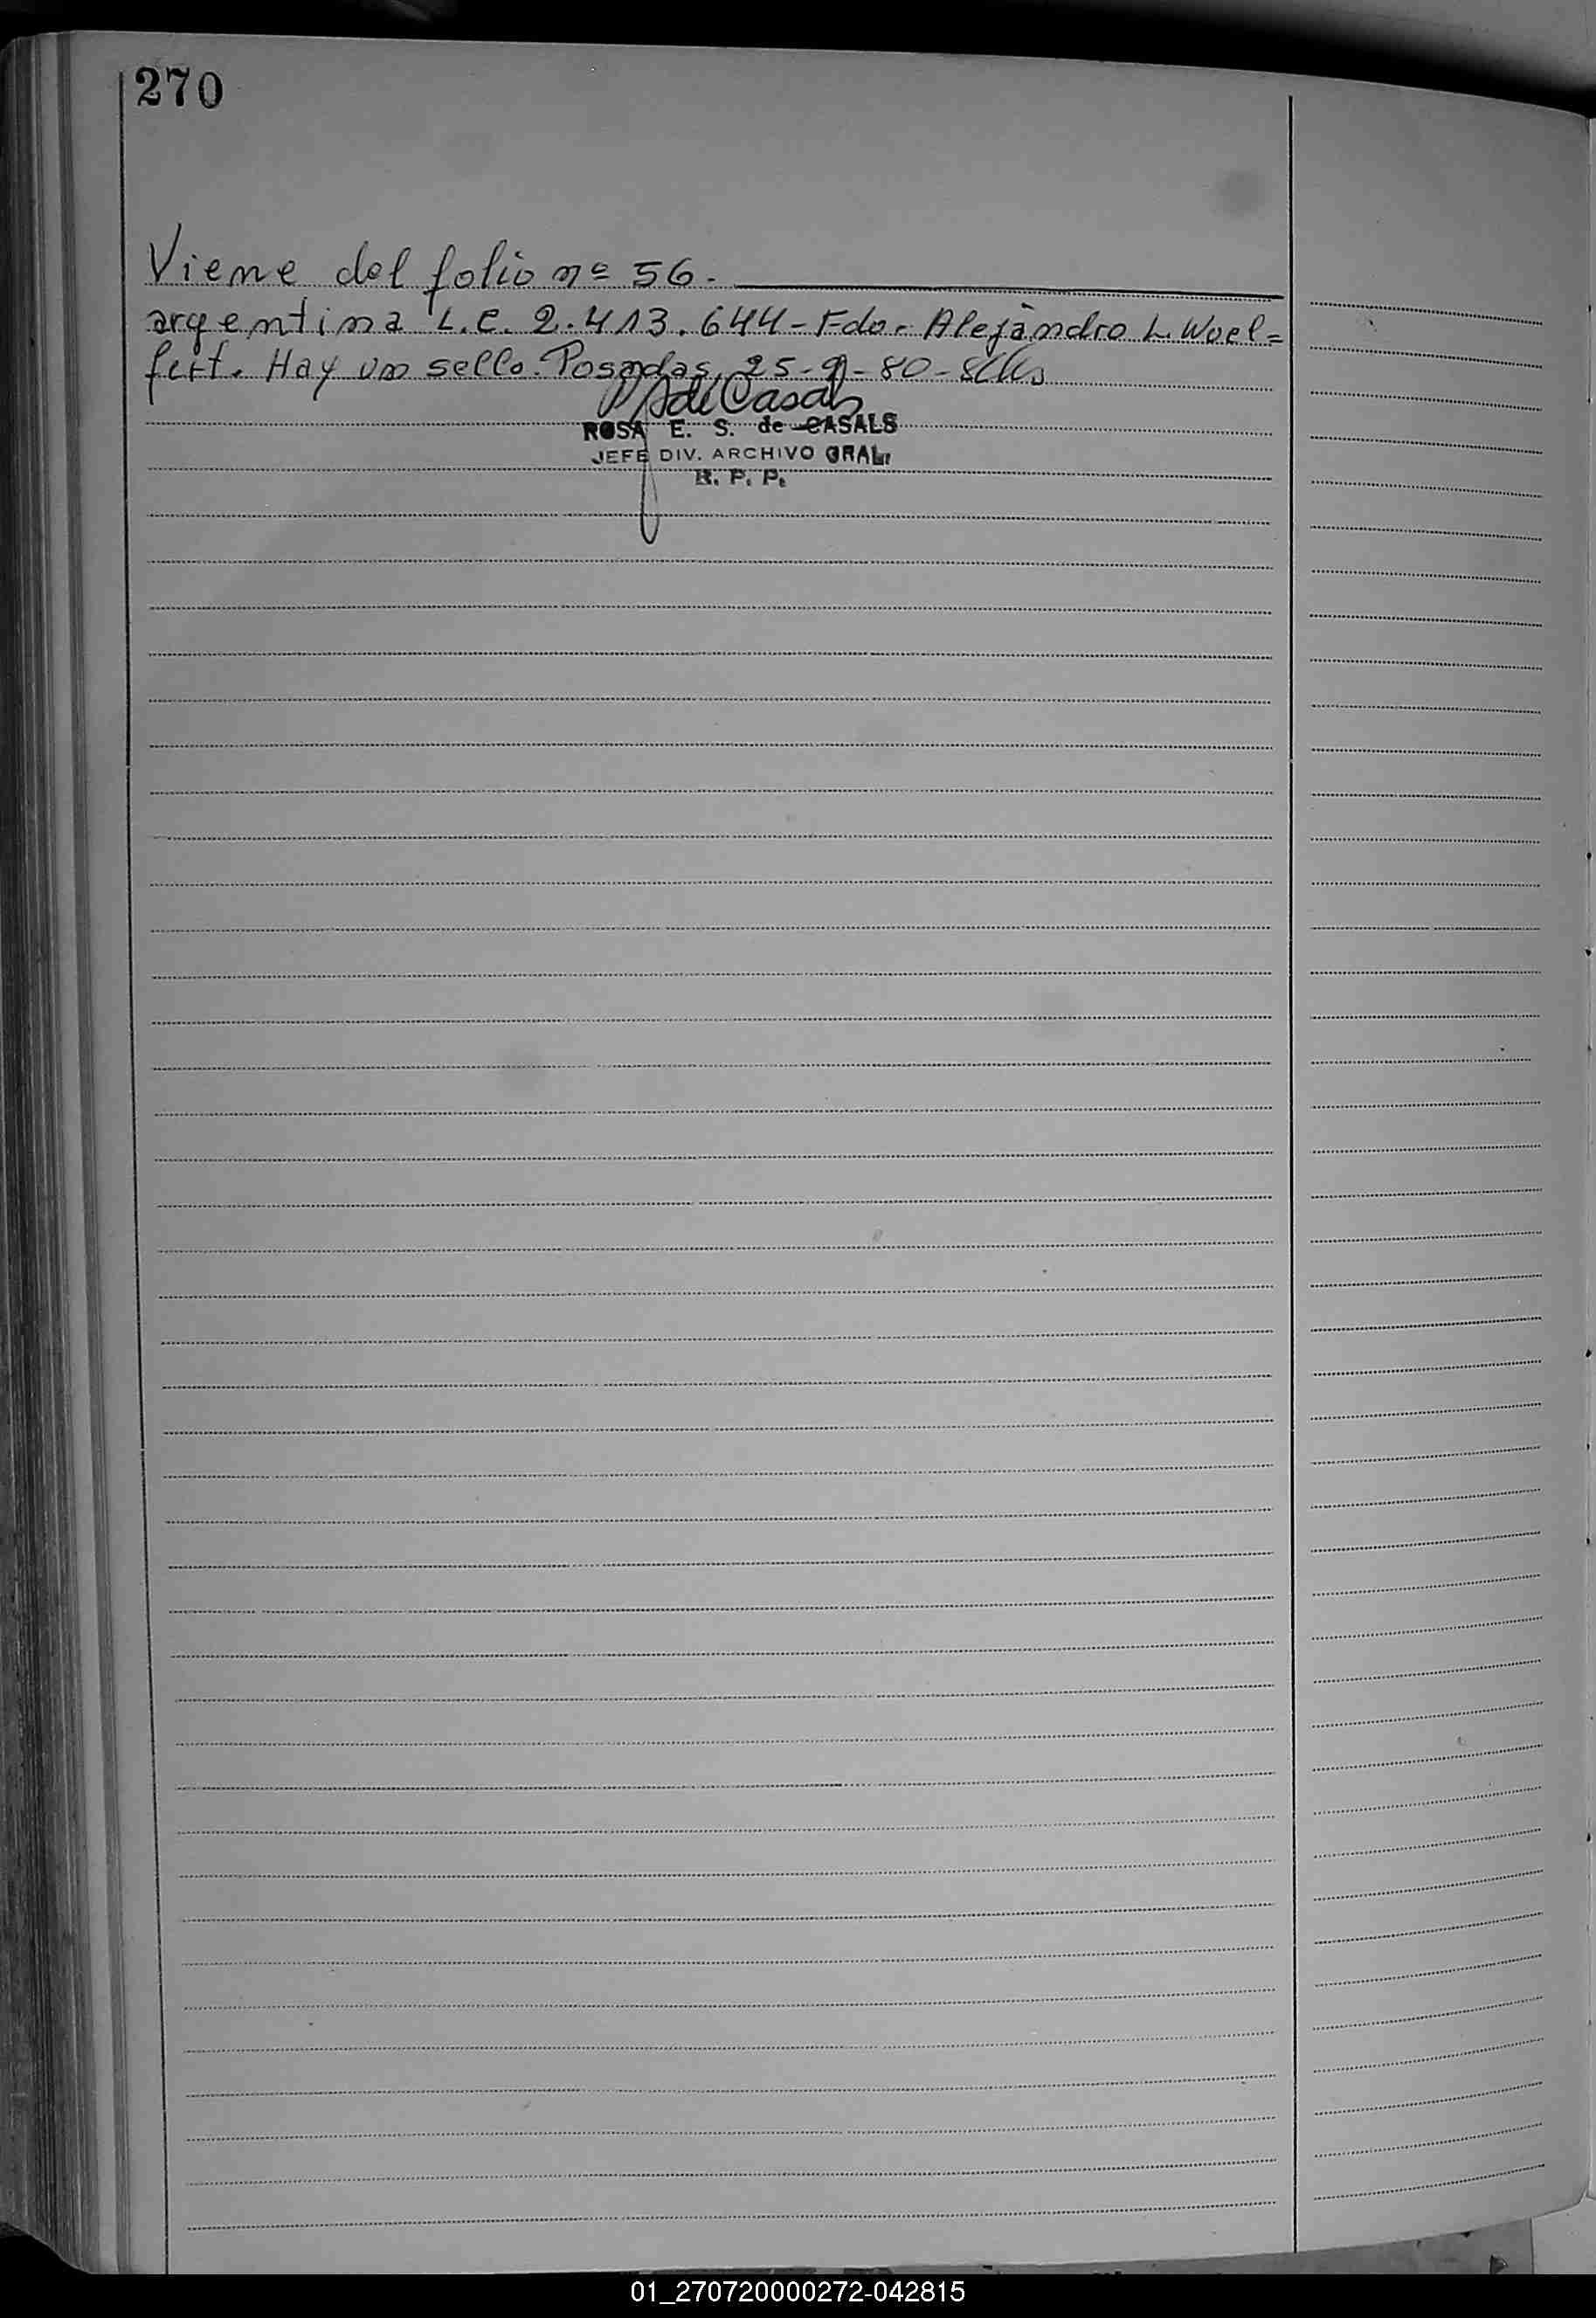 270
Viene del folio nº 56.-
argentina L.E. 2.413.644- Fdo.- Alejandro L. Woel=
fert. Hay un sello. Posadas, 25-9-80-
ROSA E. S. de CASALS
JEFE DIV. ARCHIVO GRAL.
R. P. P.
01_270720000272-042815